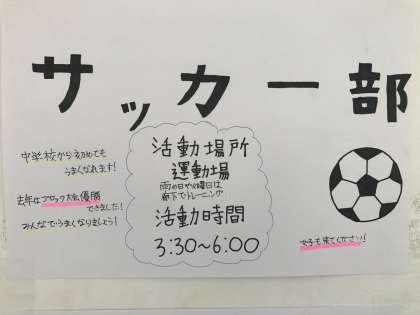 サッカー部
中学校から初めても
うまくなれます!
去年はブロック大会優勝
できました!
みんなでうまくなりましょう!
活動場所
運動場
雨の日や火曜日は
廊下でトレーニング
活動時間
3:30〜6:00
女子も来てください!